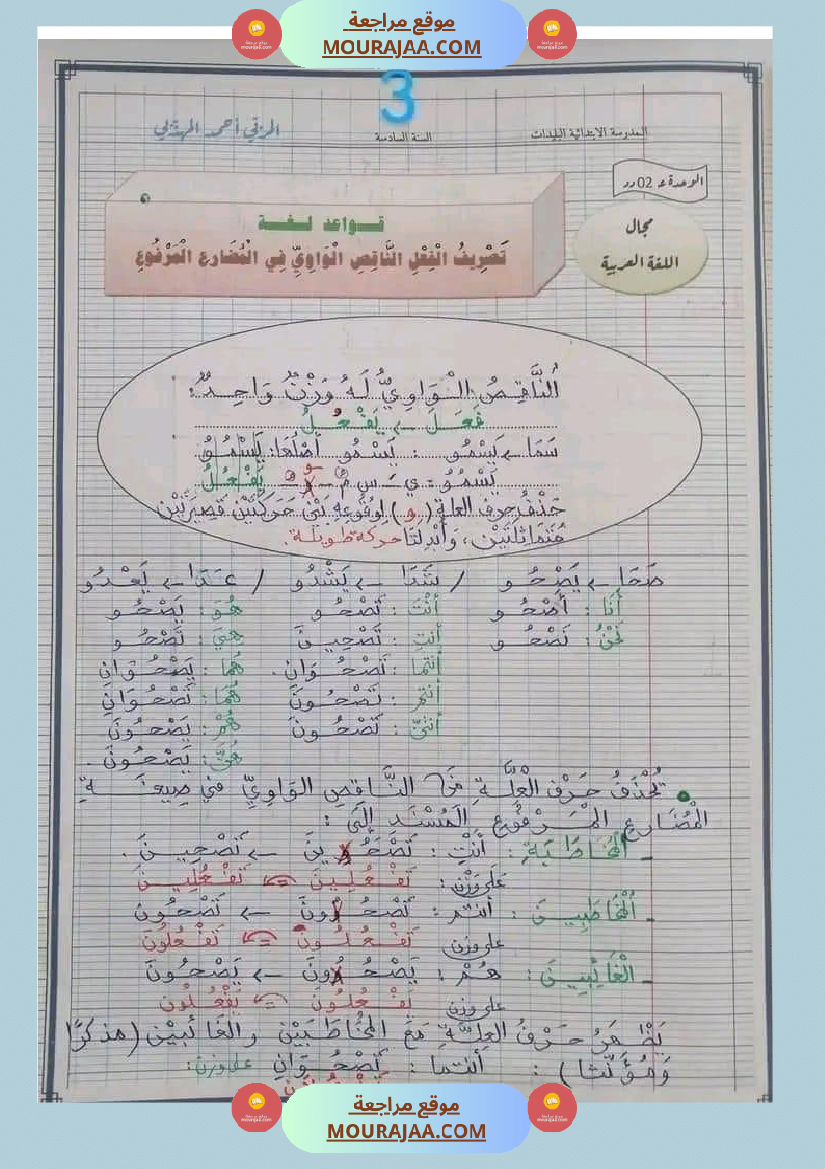 موقع مراجعة
MOURAJAA.COM
3
المدرسة الابتدائية البليدات
السنة السادسة
المرقي أحمد المهذبي
الوحدة 02
مجال
اللغة العربية
قواعد لغة
تَصْرِيفُ الْفِعْلِ النَّاقِصِ الْوَاوِيِّ فِي الْمُضَارِعِ الْمَرْفُوعِ
النَّاقِصُ الْوَاوِيُّ لَهُ وَزْنٌ وَاحِدٌ:
فَعَلَ ← يَفْعُلُ
سَمَا ← يَسْمُو : يَسْمُو أَصْلُهَا: يَسْمُوُ
يَسْمُوُ: يَ - س م ُ و ُ يَفْعُلُ
حَذْفُ حرف العلة (و) لِوُقُوعِهِ بَيْنَ حَرَكَتَيْنِ قَصِيرَتَيْنِ
مُتَمَاثِلَتَيْنِ، وَأُبْدِلَتَا حركة طويلة.
صَحَا ← يَصْحُو / شَدَا ← يَشْدُو / عَدَا ← يَعْدُو
أَنَا : أَصْحُو أَنْتَ : تَصْحُو هُوَ : يَصْحُو
نَحْنُ : نَصْحُو أَنْتِ : تَصْحِينَ هِيَ : تَصْحُو
أنتما : تَصْحُوَانِ . هُمَا : يَصْحُوَانِ
أنتم : تَصْحُونَ هُمَا : تَصْحُوَانِ
أنتنّ : تَصْحُونَ هُمْ : يَصْحُونَ
هُنَّ : يَصْحُونَ .
• يُحْذَفُ حَرْفُ الْعِلَّةِ مِنَ النَّاقِصِ الوَاوِيِّ في صِيغَةِ
الْمُضَارِعِ الْمَرْفُوعِ الْمُسْنَدِ إِلَى :
- الْمُخَاطَبَةِ : أَنْتِ : تَصْحُوِينَ ← تَصْحِينَ .
عَلَى وَزْنِ : تَفْعُلِينَ تَفْعُلِينَ
- الْمُخَاطَبِينَ : أنتم : تَصْحُوُونَ ← تَصْحُونَ
على وزن تَفْعُلُونَ تَفْعُلُونَ
- الْغَائِبِينَ : هُمْ : يَصْحُوُونَ ← يَصْحُونَ
على وزن يَفْعُلُونَ يَفْعُلُونَ
يَظْهَرُ حَرْفُ العِلَّةِ مَعَ المُخَاطَبَيْنِ والغَائبَيْنِ (مذكرًا
وَمُؤَنَّثًا) : أنتما : تَصْحُوَانِ على وزن:
موقع مراجعة
MOURAJAA.COM